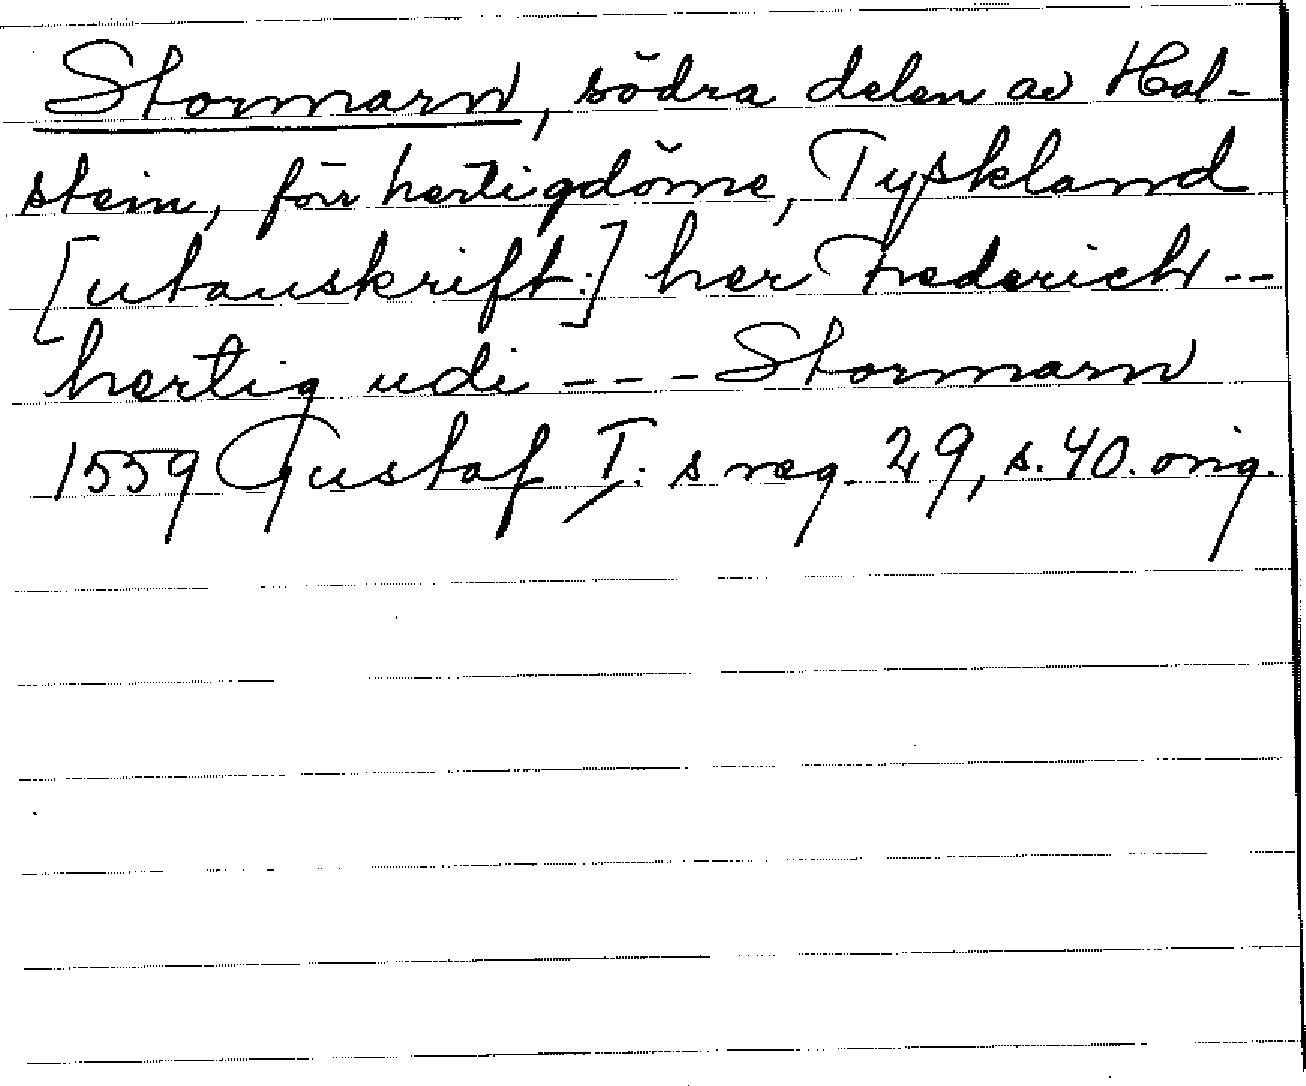 Stormarn, södra delen av Hol-
stein, förr hertigdöme, Tyskland
[utanskrift:] her Frederich --
hertig udi --- Stormarn
1559 Gustaf I: s reg. 29, s. 40. orig.